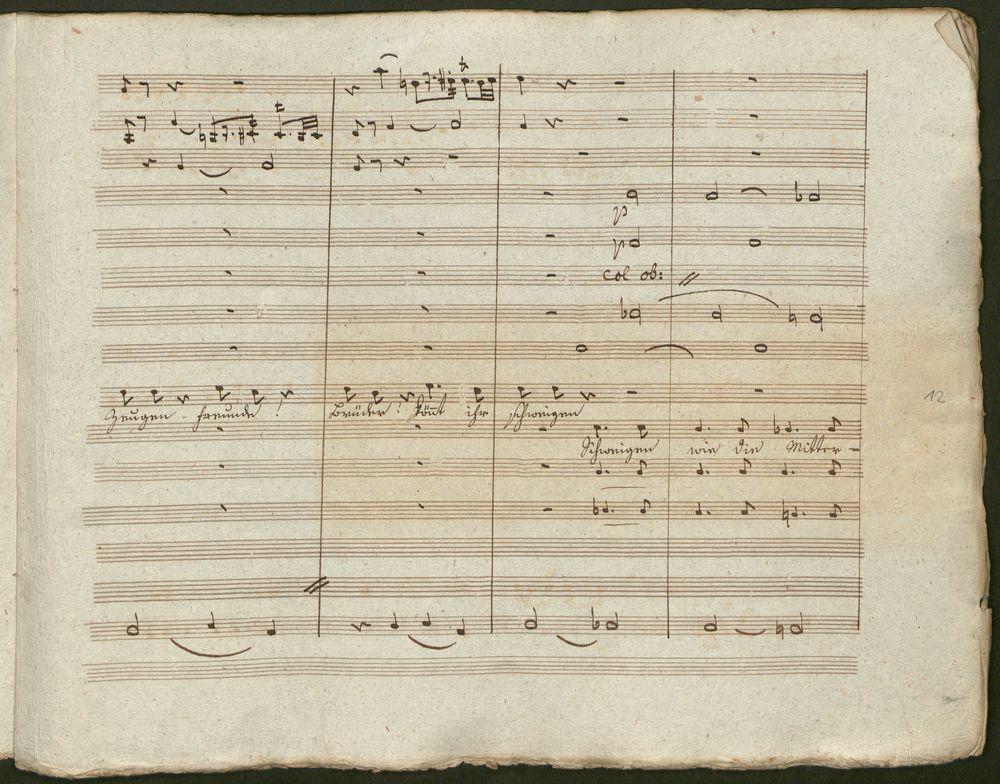 p
p
col ob:
Zeugen - freunde! Brüder! könt ihr schweigen
12
Schweigen wie die Mitter -